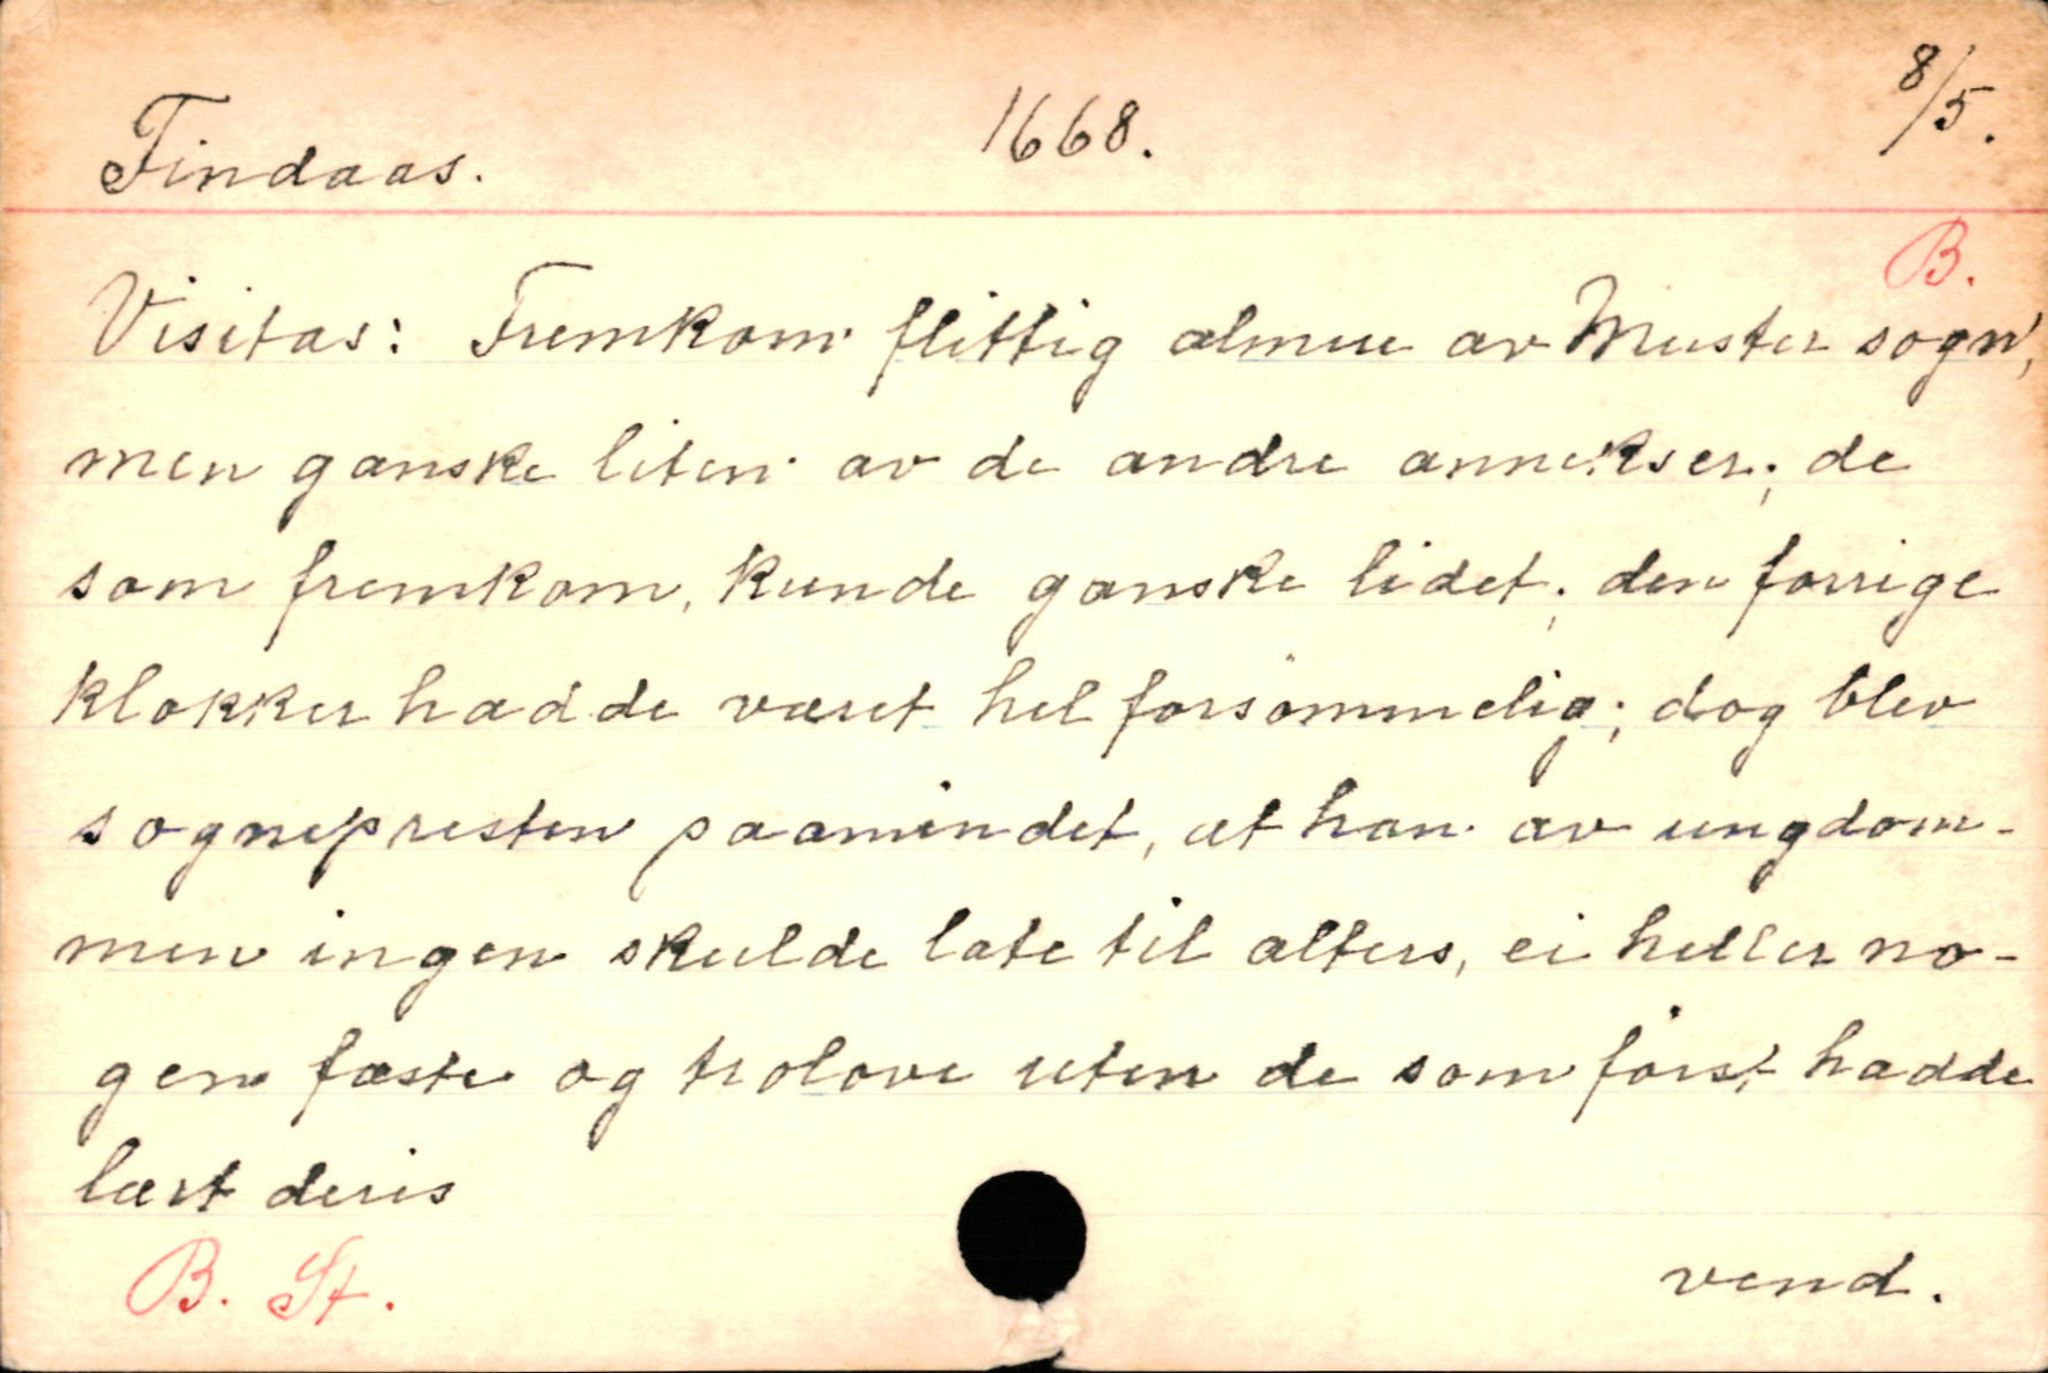 Findaas. 1668. 8/5.
B.
Visitas: Fremkom flittig almue av Muster sogn,
men ganske liten av de andre annekser; de
som fremkom, kunde ganske lidet; den forrige
klokker hadde været hel forsömmelig; dog blev
sognepresten paamindet, at han av ungdom-
men ingen skulde late til alters, ei heller no-
gen fæste og trolove uten de som först hadde
lært deres
B. St. vend.